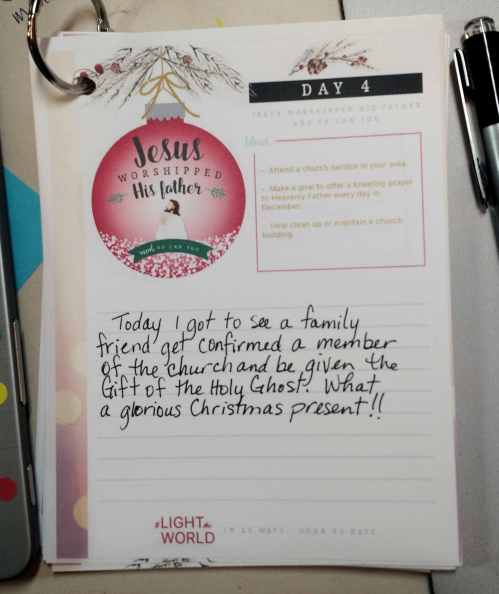 DAY 4
JESUS WORSHIPPED HIS FATHER
AND SO CAN YOU
Jesus
WORSHIPPED
His father
and SO CAN YOU
- Attend a church service in your area.
- Make a goal to offer a kneeling prayer
to Heavenly Father every day in
December.
- Help clean up or maintain a church
building.
Today I got to see a family
friend get confirmed a member
of the church and be given the
Gift of the Holy Ghost. What
a glorious Christmas present!!
#LIGHT the
WORLD
IN 25 WAYS, OVER 25 DAYS